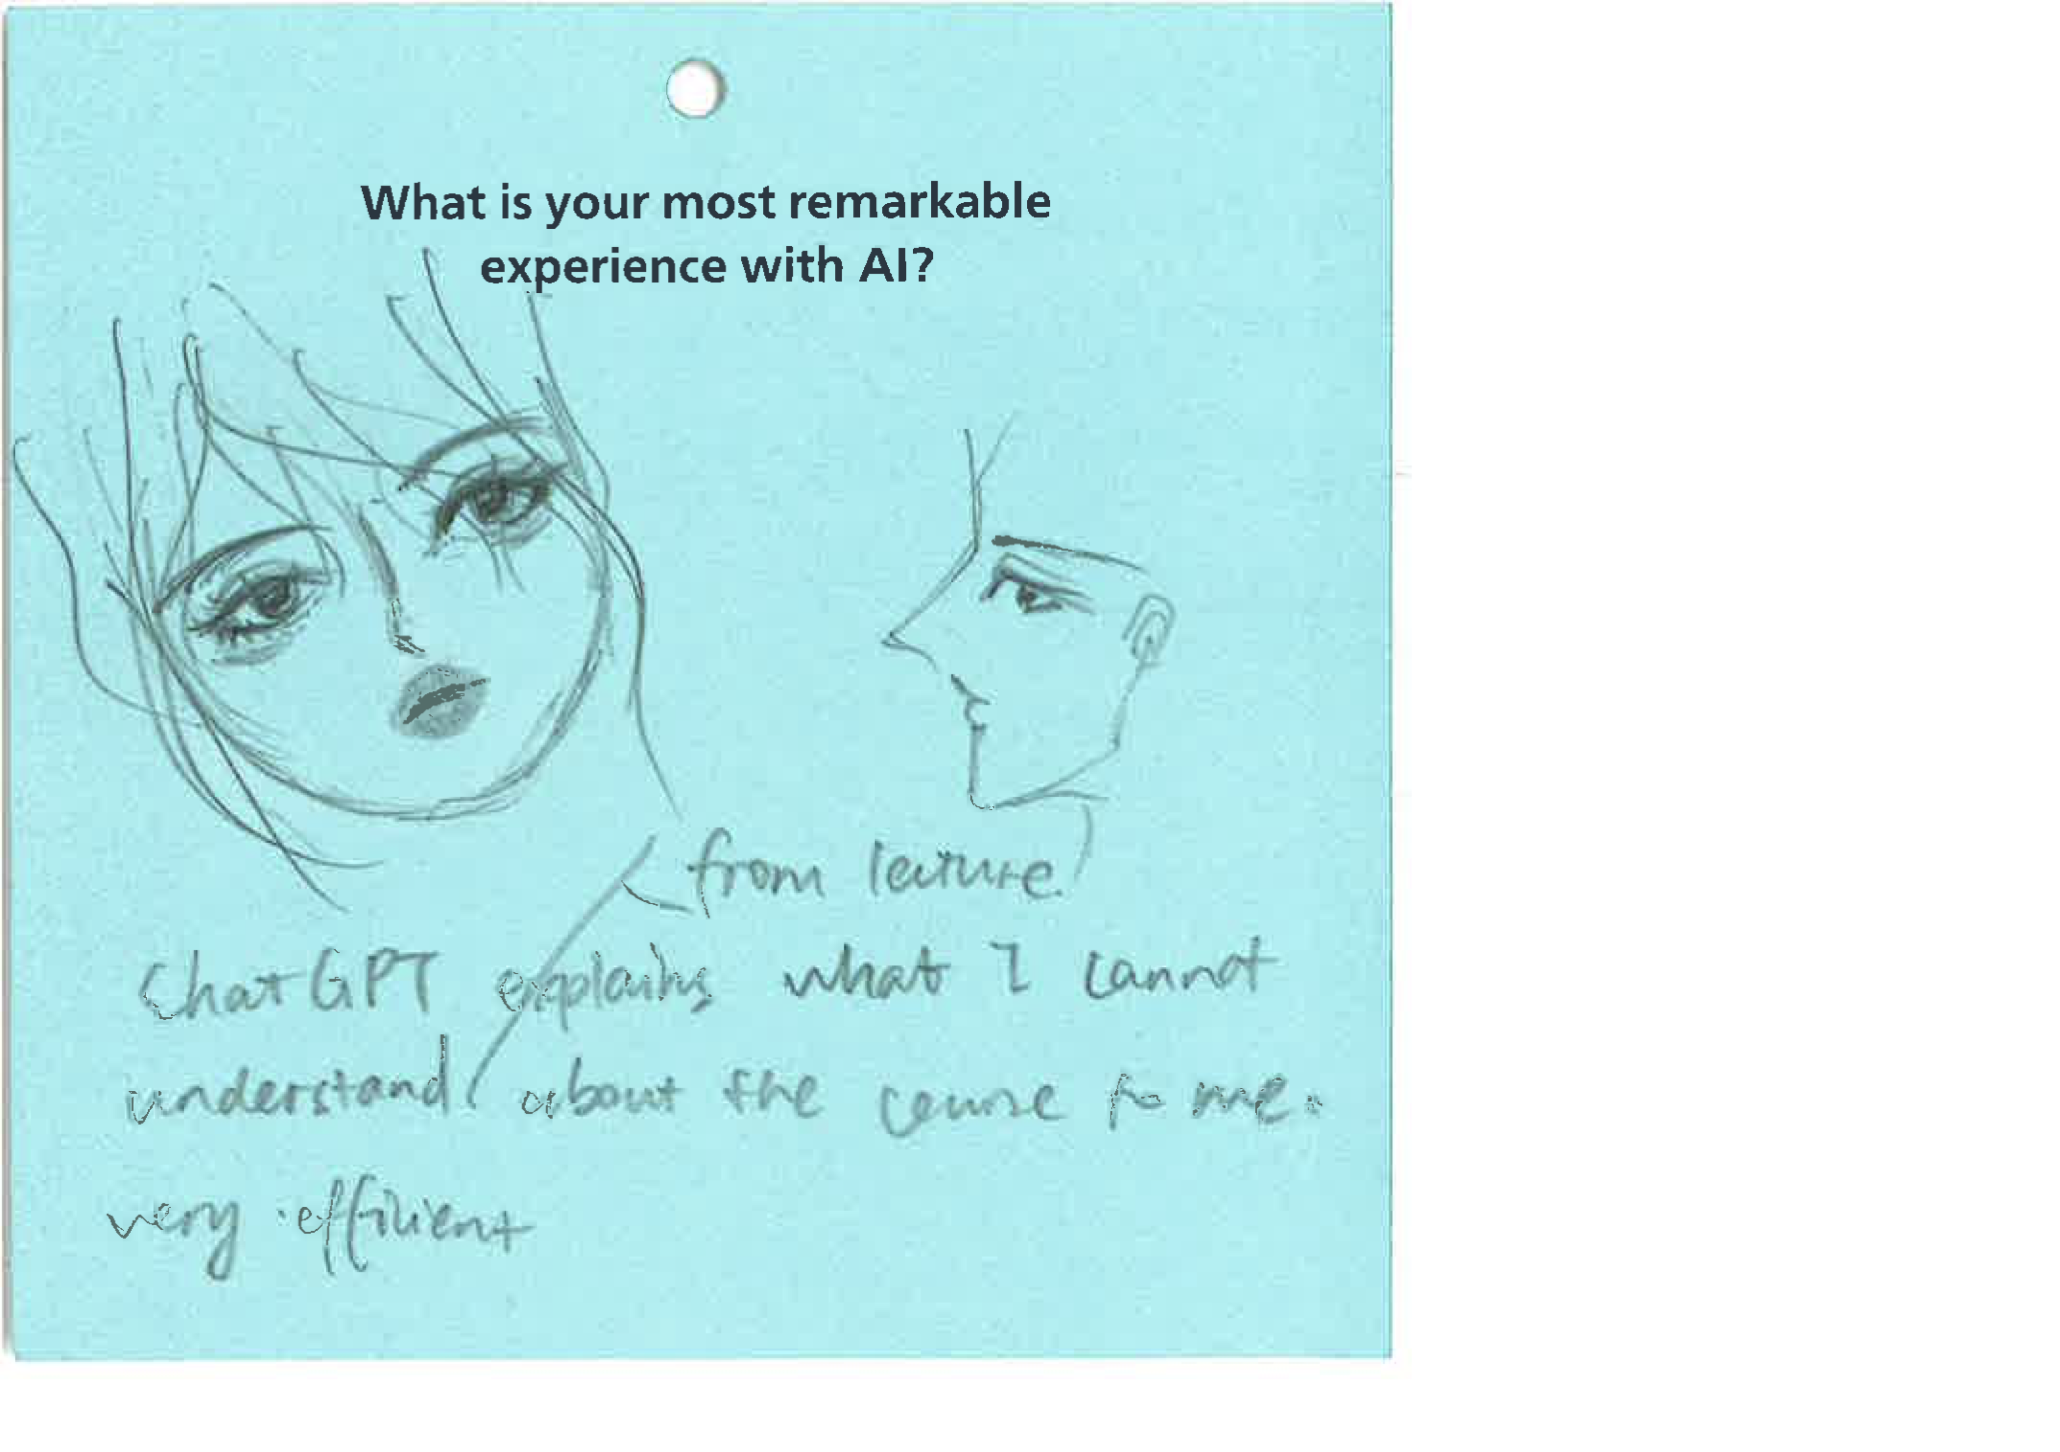 What is your most remarkable
experience with AI?
from lecture
ChatGPT explains what I cannot
understand about the course to me.
very efficient